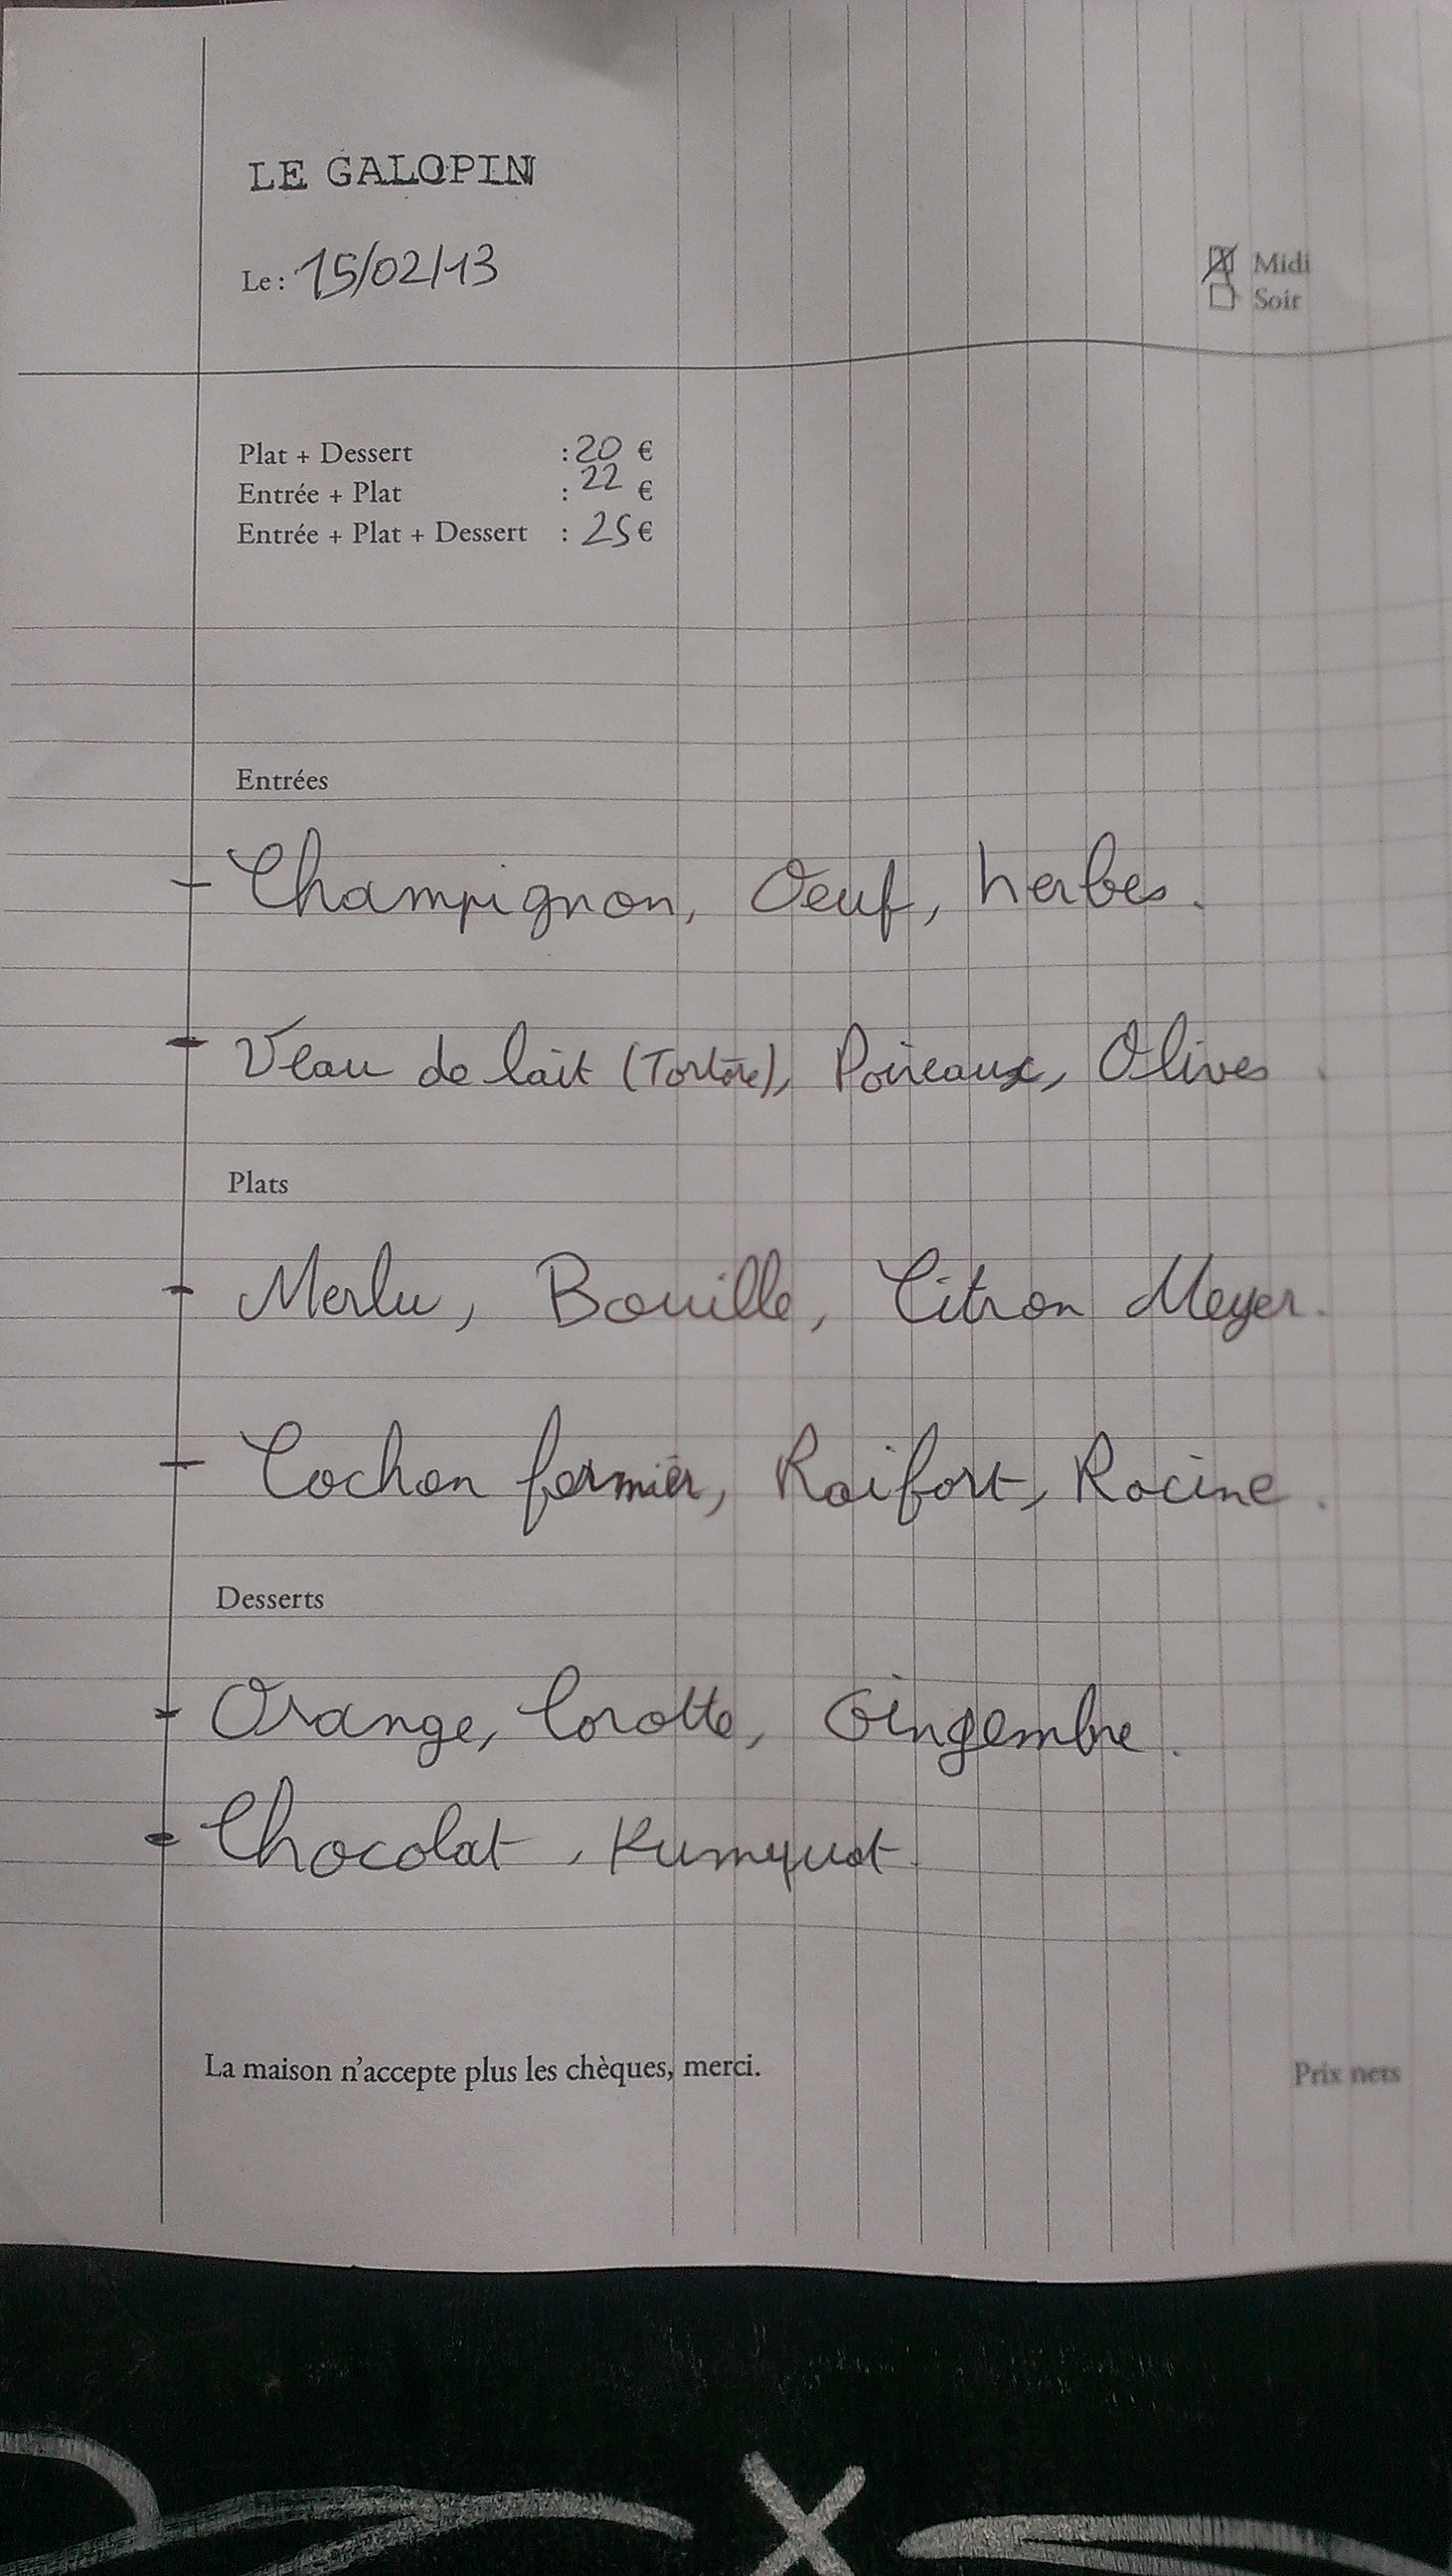 LE GALOPIN
Le : 15/02/13
Midi
Soir
Plat + Dessert : 20 €
Entrée + Plat : 22 €
Entrée + Plat + Dessert : 25 €
Entrées
- Champignon, Oeuf, herbes.
- Veau de lait (Tartare), Poireaux, Olives.
Plats
- Merlu, Bouille, Citron Meyer.
- Cochon fermier, Raifort, Racine.
Desserts
- Orange, Carotte, Gingembre.
- Chocolat, Kumquat.
La maison n'accepte plus les chèques, merci.
Prix nets